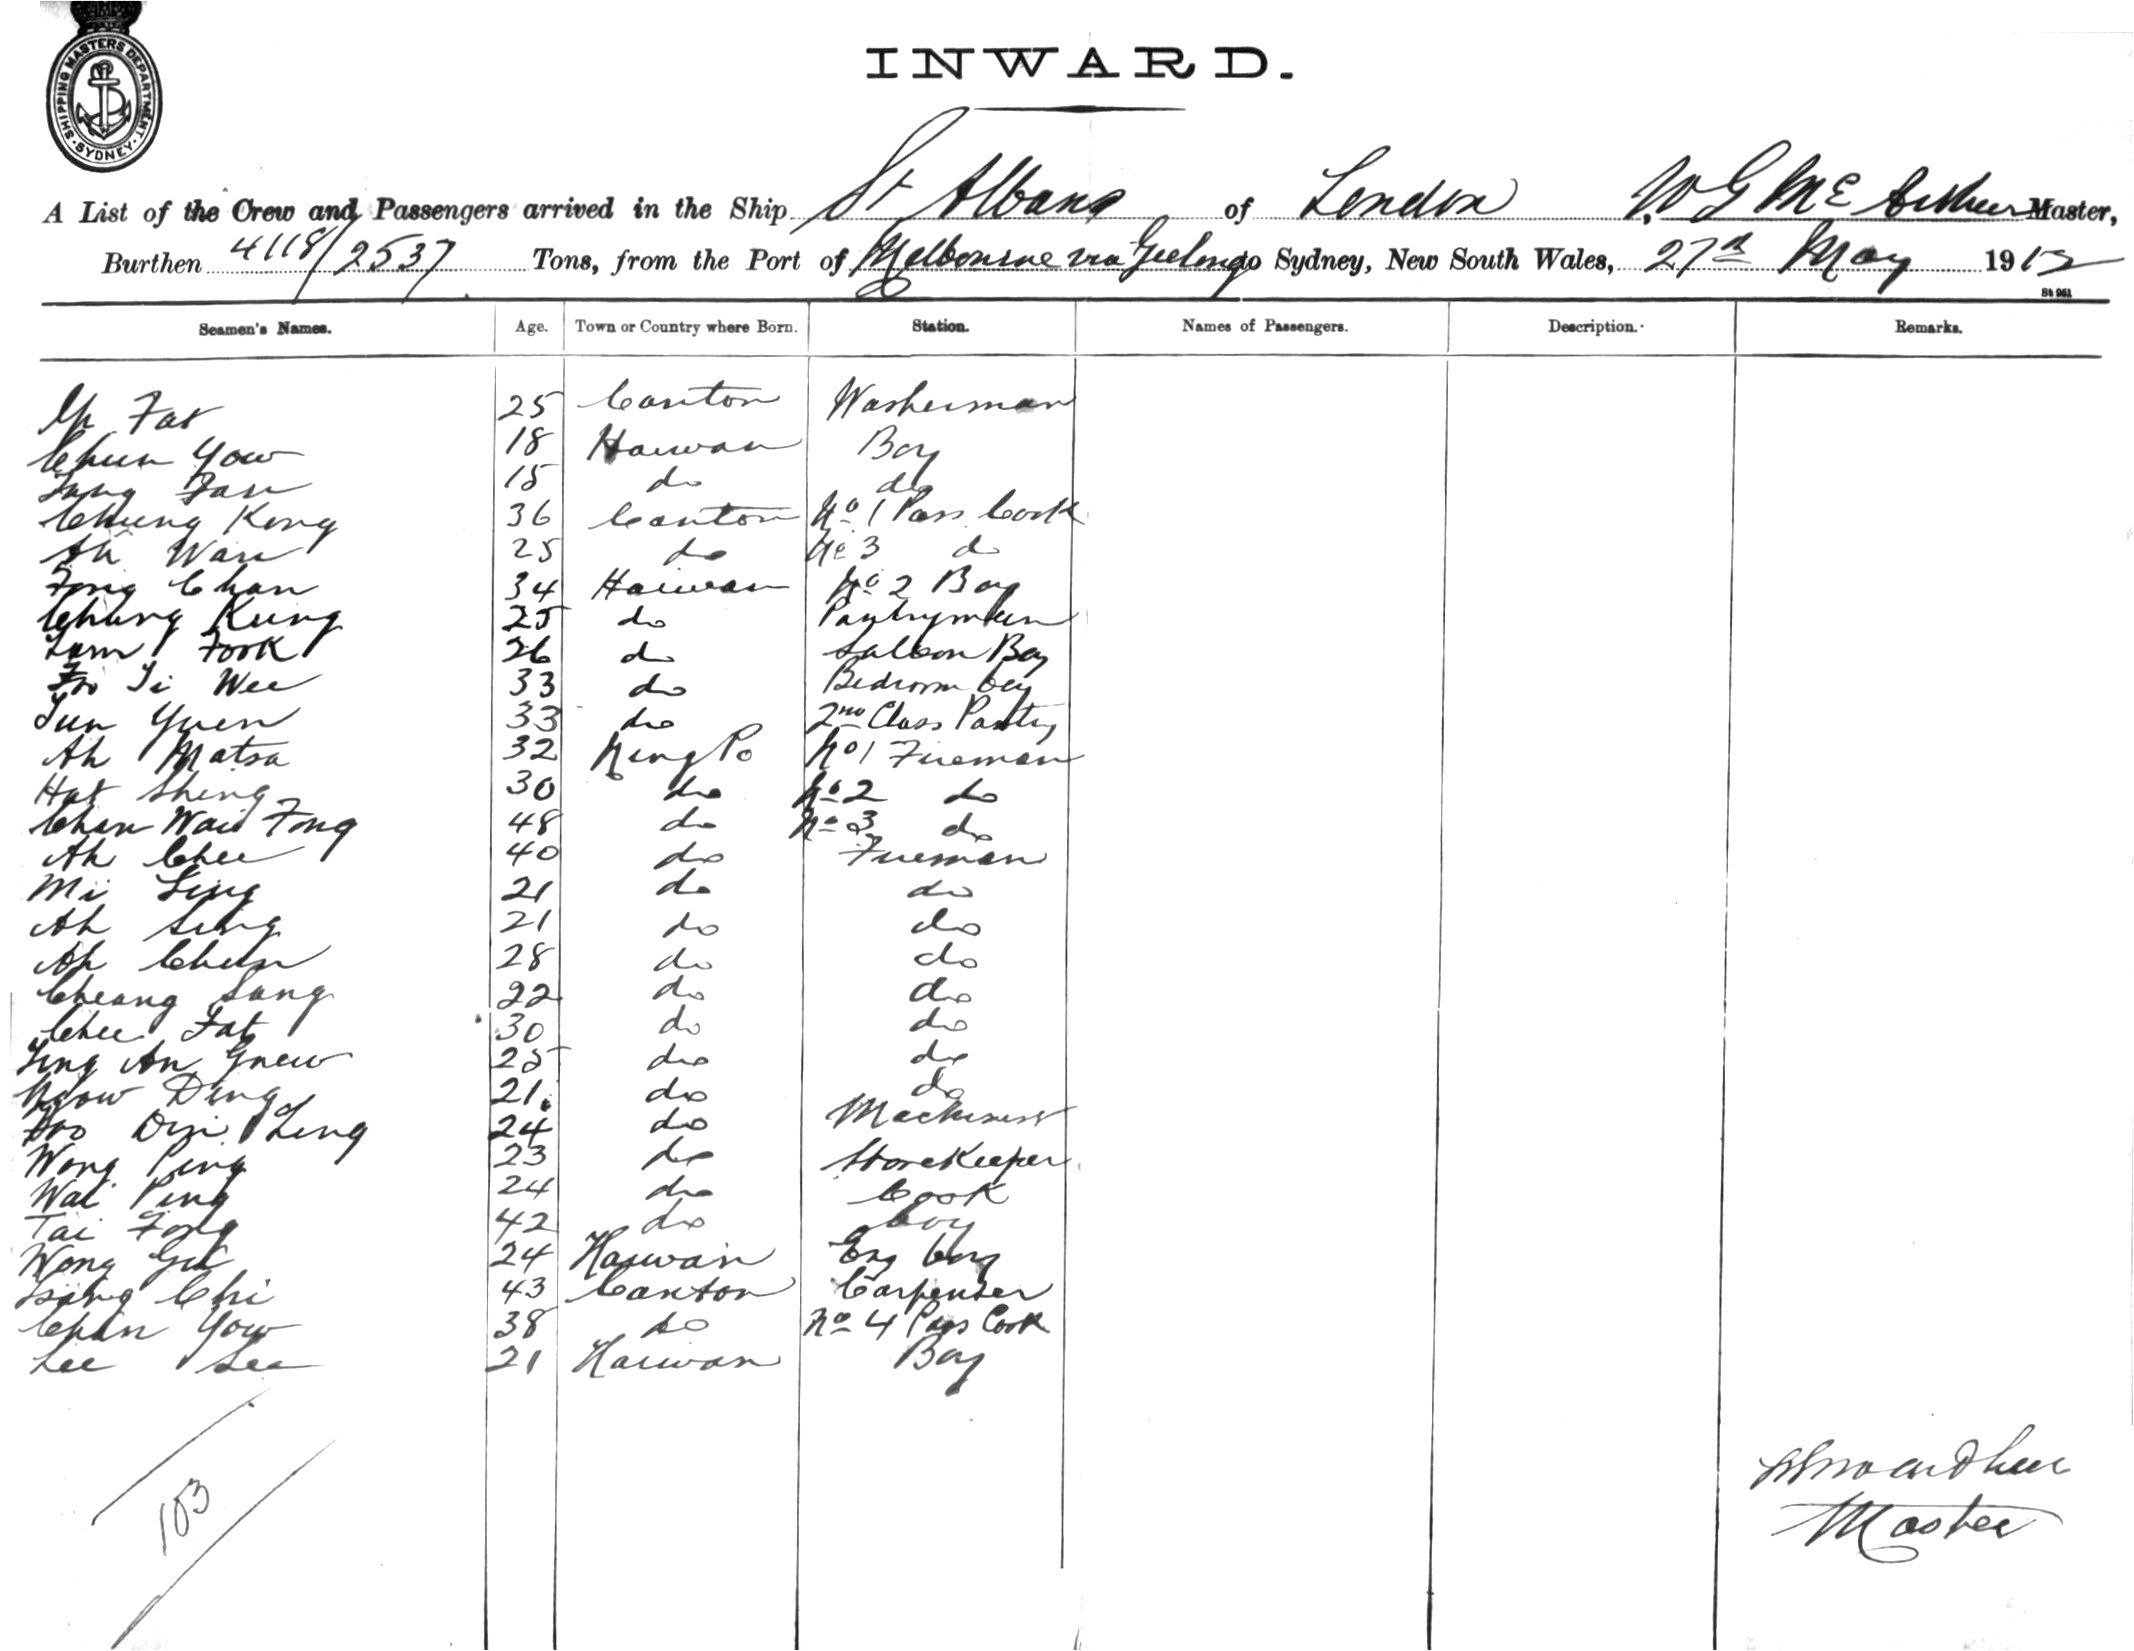 SHIPPING MASTERS DEPARTMENT
SYDNEY
INWARD.
A List of the Crew and Passengers arrived in the Ship St Albans of London W G McArthur Master,
Burthen 4118/2537 Tons, from the Port of Melbourne via Geelong to Sydney, New South Wales, 27th May 1912
St 961
Seamen's Names. Age. Town or Country where Born. Station. Names of Passengers. Description. Remarks.
Yp Fat 25 Canton Washerman
Chun Yow 18 Haiwan Boy
Fan 15 do do
Chung Kong 36 Canton No 1 Pass Cook
Ah Wan 25 do No 3 do
Fong Chan 34 Haiwan No 2 Boy
Chung Kung 25 do Pantryman
Lam Fook 26 do Saloon Boy
Foo Ti Wee 33 do Bedroom boy
Yuen 33 do 2nd Class Pantry
Ah Matsa 32 Ning Po No 1 Fireman
Hat Shing 30 do No 2 do
Chan Wai Fong 48 do No 3 do
Ah Chee 40 do Fireman
Mi Ling 21 do do
Ah Sing 21 do do
Ah Chun 28 do do
Cheang Sang 22 do do
Chee Fat 30 do do
An 25 do do
Ding 21 do do
Ling 24 do Machinist
Wong Ping 23 do Storekeeper
Wai Ping 24 do Cook
Tai Fong 42 do boy
Wong 24 Haiwan Eng boy
Chi 43 Canton Carpenter
Chan Yow 38 do No 4 Pass Cook
Lee Lee 21 Haiwan Boy
103
Master